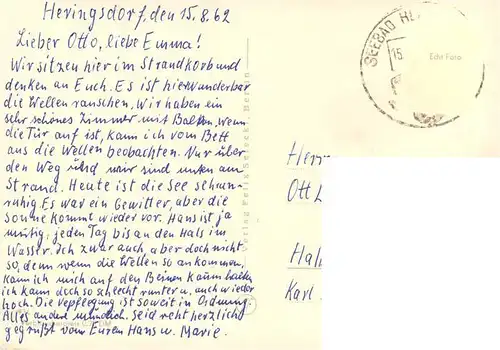 Heringsdorf, den 15.8.62
Lieber Otto, liebe Emma!
Wir sitzen hier im Strandkorb und
denken an Euch. Es ist hier wunderbar
die Wellen rauschen, Wir haben ein
sehr schönes Zimmer mit Balkon, wenn
die Tür auf ist, kann ich vom Bett
aus die Wellen beobachten. Nur über
den Weg und wir sind unten am
Strand. Heute ist die See sehr
ruhig. Es war ein Gewitter, aber die
Sonne kommt wieder vor. Hans ist ja
mutig, jeden Tag bis an den Hals im
Wasser. Ich zwar auch, aber doch nicht
so, denn wenn die Wellen so ankommen,
kann ich mich auf den Beinen kaum halten
ich kann doch so schlecht runter u. auch wieder
hoch. Die Verpflegung ist soweit in Ordnung.
Alles andere mündlich. Seid recht herzlich
gegrüßt von Euren Hans u. Marie.
Verlag Felix Setecki, Berlin
SEEBAD HE
15
Echt Foto
Herrn
Ott
Hal
Karl